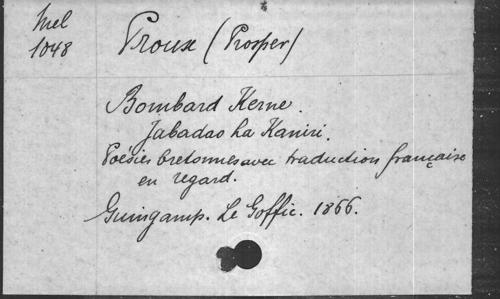 Mel
1048
Proux (Prosper)
Bombard Kerne.
Jabadao ha Kaniri.
Poésies bretonnes avec traduction française
en regard.
Guingamp. Le Goffic. 1866.